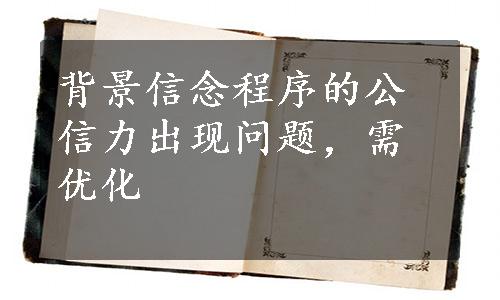 背景信念程序的公
信力出现问题，需
优化